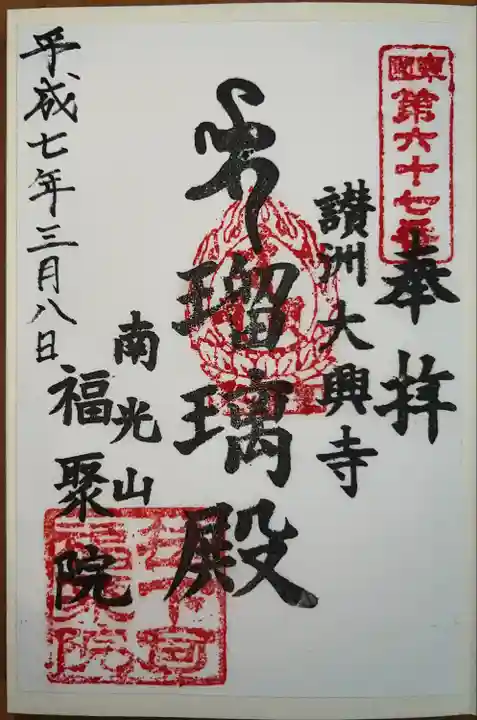 東国
第六十七番
奉拝
讃洲大興寺
瑠璃殿
南光山
福聚院
平成七年三月八日